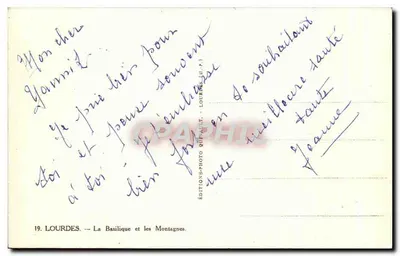 Mon cher
Yannick
Je prie bien pour
toi et pense souvent
à toi - Je t'embrasse
bien fort en te souhaitant
une meilleure santé
tante
Jeanne
19. LOURDES. — La Basilique et les Montagnes.
CPHARTE